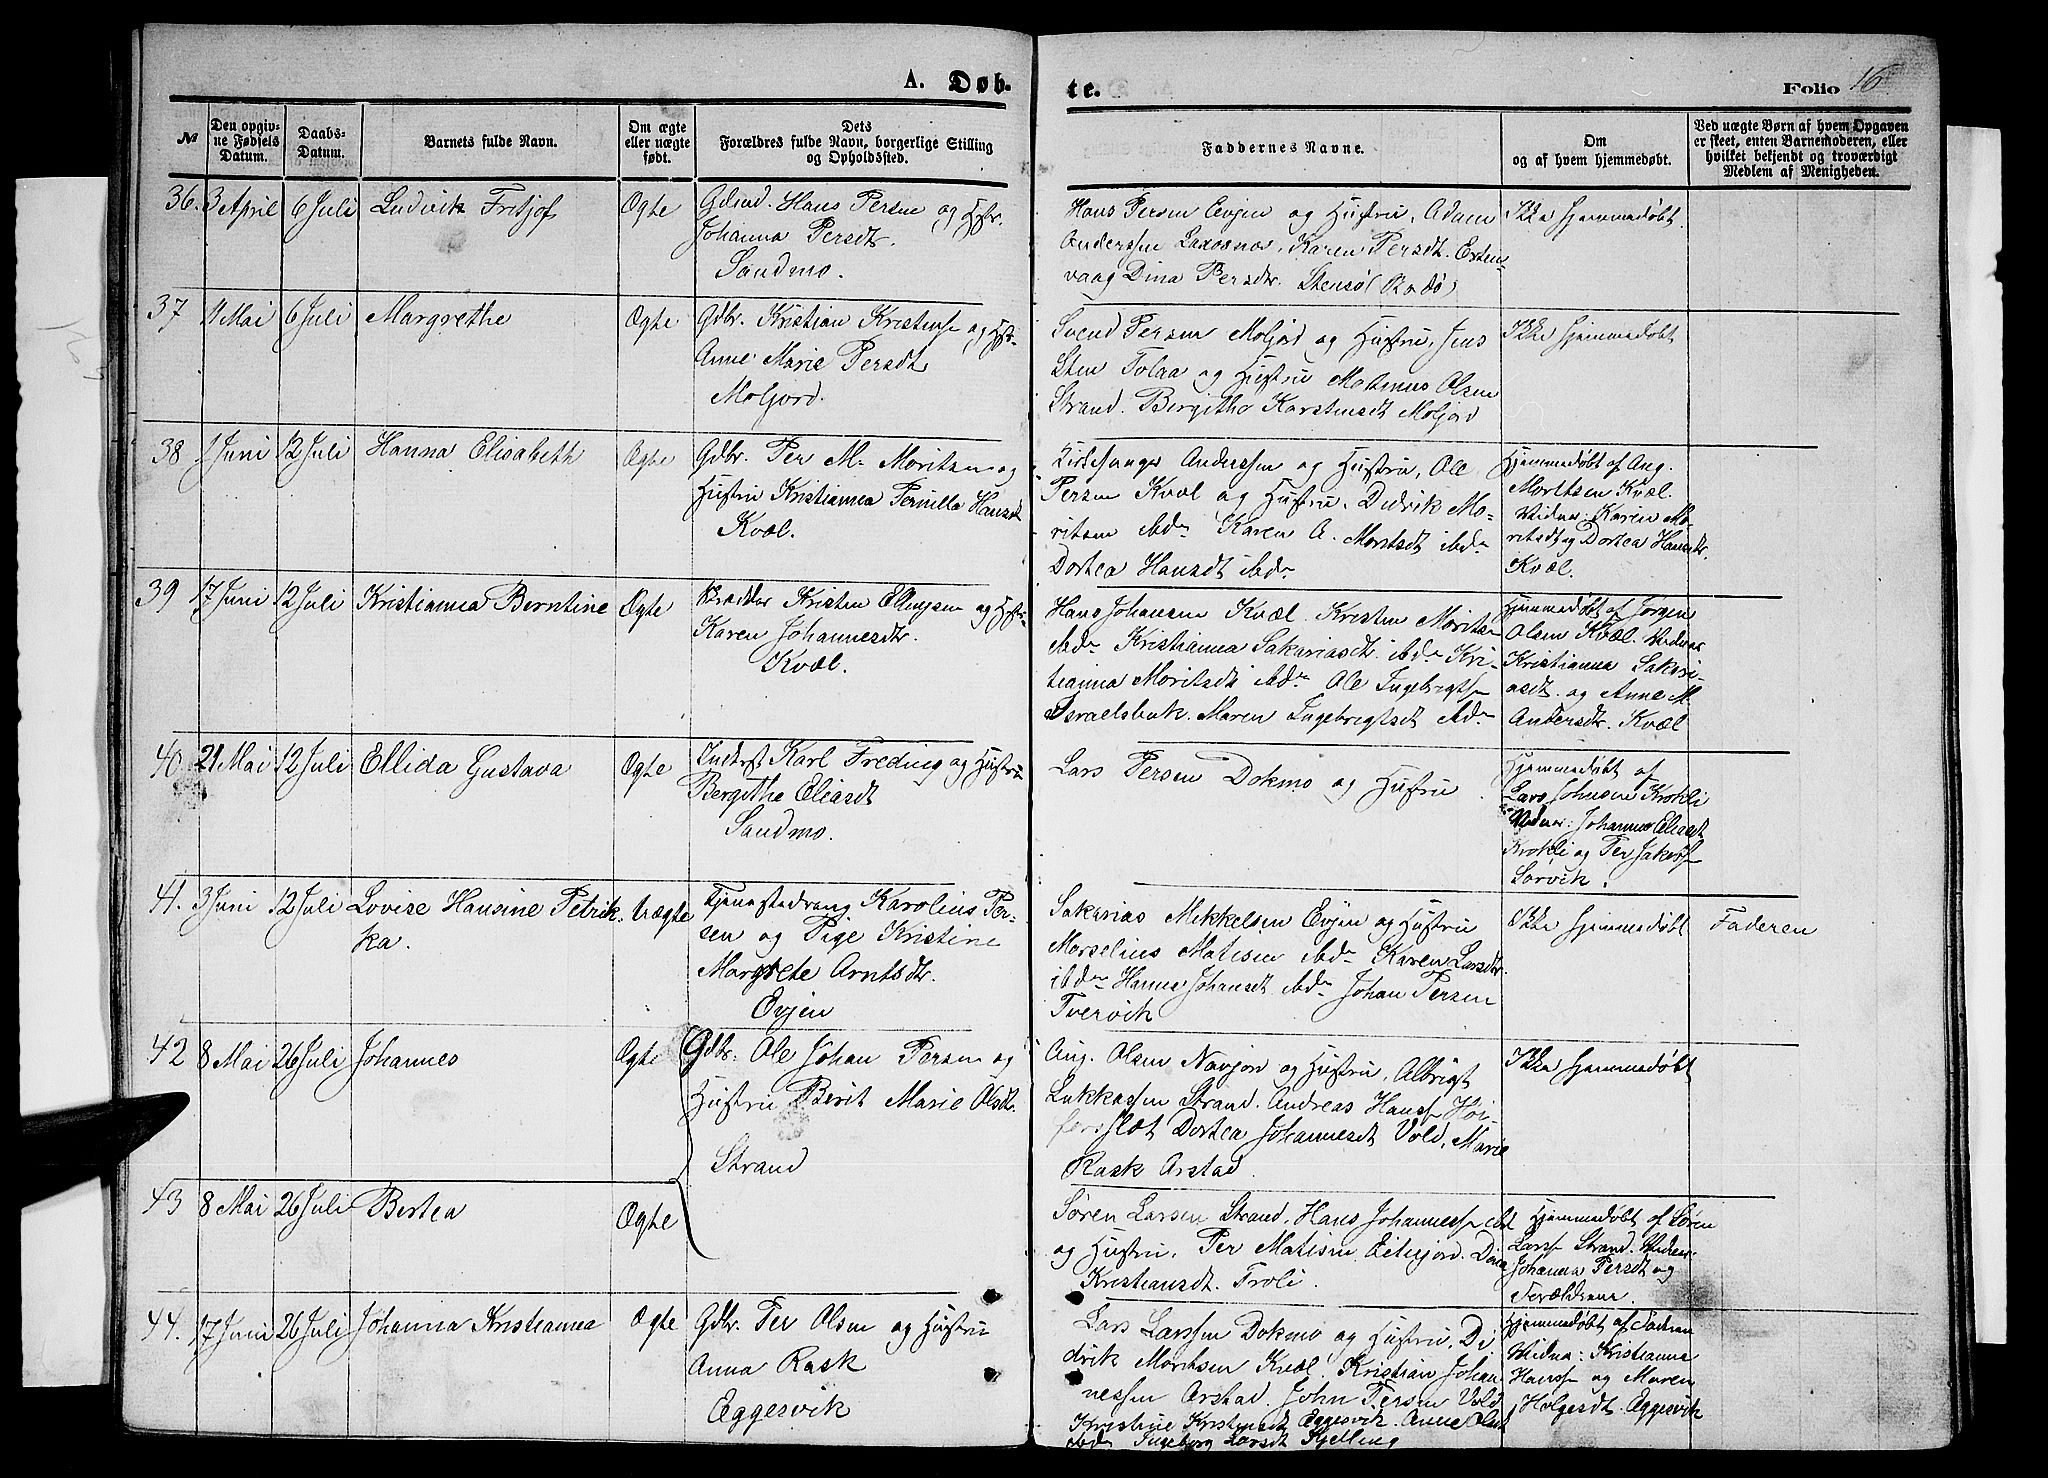 A. Døb.
te.
Folio 16
№
Den opgiv-
ne Fødsels
Datum.
Daabs-
Datum.
Barnets fulde Navn.
Om ægte
eller uægte
født.
Dets
Forældres fulde Navn, borgerlige Stilling
og Opholdssted.
Faddernes Navne.
Om
og af hvem hjemmedøbt.
Ved uægte Børn af hvem Opgaven
er skeet, enten Barnemoderen, eller
hvilket bekjendt og troværdigt
Medlem af Menigheden.
36. 3 April 6 Juli Ludvik Fritjof Ægte
Gdmd. Hans Persen og Hstr.
Johanna Persdtr.
Sandmo.
Hans Persen Evjen og Hustru, Adam
Anderssen Laxosnæs, Karen Persdt. Esten-
vaag Dina Persdtr. Stensø (Rødø)
Ikke hjemmedøbt.
37 11 Mai 6 Juli Margrethe Ægte
Gdbr. Kristian Kristens. og Hstr.
Anne Marie Persdt
Moljord.
Svend Persen Moljord og Hustru, Jens
Sten Tolaa og Hustru Matmus Olsen
Strand. Bergithe Karstensdt Moljord
Ikke hjemmedøbt
38 1 Juni 12 Juli Hanna Elisabeth Ægte
Gdbr. Per M. Moritsen og
Hustru Kristianna Pernilla Hansdt
Kvæl.
Kirkesanger Anderssen og Hustru, Ole
Persen Kvæl og Hustru. Didrik Mo-
ritsen ibdn Karen A. Moritsdt ibdn
Dortea Hansdt ibdn
Hjemmedøbt af Ang.
Moritsen Kvæl.
Vidner: Karen Mo-
ritsdt og Dortea Hansdtr.
Kvæl.
39 17 Juni 12 Juli Kristianna Berntine Ægte
Kristen Ellingsen og Hstr.
Karen Johannesdtr.
Kvæl.
Hans Johansen Kvæl. Kristen Moritsen
ibdn Kristianna Sakariasdt. ibdn Kri-
tianna Moritsdt ibdn Ole Ingebrigtsen
Israelsbak. Maren Ingebrigtsdt ibdn
Hjemmedøbt af Jørgen
Olsen Kvæl. Vidner
Kristianna Sakari-
asdt. og Anne M.
Andersdtr. Kvæl
40. 21 Mai 12 Juli Ellida Gustava Ægte
Inderst Karl Freding og Hustru
Bergithe Eliasdt
Sandmo.
Lars Persen Dokmo og Hustru.
Hjemmedøbt af
Lars Johnsen Krokli
Vidner: Johanna Eliasdt
Krokli og Per Jakobs.
Sørvik.
41. 3 Juni 12 Juli Lovise Hansine Petrik- Uægte
ka.
Tjenestedreng Karolius Per-
sen og Pige Kristine
Margrete Arntsdtr.
Evjen
Sakarias Mikkelsen Evjen og Hustru
Morselius Matisen ibdn Karen Larsdtr.
ibdn Hanna Johansdt ibdn Johan Persen
Tvervik
Ikke hjemmedøbt
Faderen
42 8 Mai 26 Juli Johannes Ægte
Gdbr. Ole Johan Persen og
Hustru Berit Marie Olsdt.
Strand
Aug. Olsen Navjon og Hustru, Albrigt
Lukkassen Strand. Andreas Hans. Høi-
forsslæt Dortea Johannesdt Vold, Marie
Rask Arstad.
Ikke hjemmedøbt
43 8 Mai 26 Juli Bertea Ægte
Søren Larsen Strand, Hans Johannes. ibd
og Hustru, Per Matisen Eiterjord. Dina
Kristiansdt. Troli.
Hjemmedøbt af Søren
Lars. Strand. Vidner
Johanna Persdt og
Forældrene.
44. 17 Juni 26 Juli Johanna Kristianna Ægte
Gdbr. Per Olsen og Hustru
Anna Rask
Eggesvik
Lars Larssen Dokmo og Hustru, Di-
drik Moritsen Kvæl. Kristian Johan-
nessen Arstad. John Persen Vold
Kristine Kristensdt Eggesvik. Anne Olsdt
ibdn Ingeborg Larsdt Kjelling
Hjemmedøbt af Faderen
Vidner: Kristianna
Hans. og Maren
Holgersdt. Eggesvik